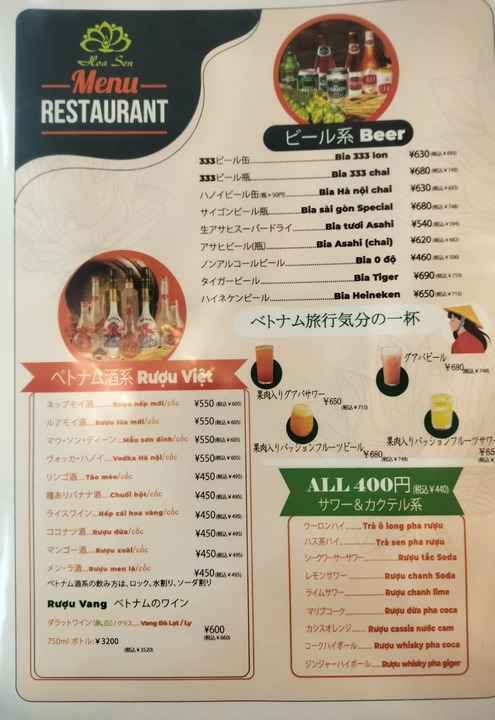 Hoa Sen
Menu
RESTAURANT
ビール系 Beer
333ビール缶 Bia 333 lon ¥630(税込￥693)
333ビール瓶 Bia 333 chai ¥680(税込￥748)
ハノイビール缶(瓶+50円) Bia Hà nội chai ¥630(税込￥693)
サイゴンビール瓶 Bia sài gòn Special ¥680(税込￥748)
生アサヒスーパードライ Bia tươi Asahi ¥540(税込￥594)
アサヒビール(瓶) Bia Asahi (chai) ¥620(税込￥682)
ノンアルコールビール Bia 0 độ ¥460(税込￥506)
タイガービール Bia Tiger ¥690(税込￥759)
ハイネケンビール Bia Heineken ¥650(税込￥715)
ベトナム旅行気分の一杯
果肉入りグアバサワー
¥650(税込￥715)
グアバビール
¥680(税込￥748)
果肉入りパッションフルーツビール
¥680(税込￥748)
果肉入りパッションフルーツサワー
ベトナム酒系 Rượu Việt
ネップモイ酒 Rượu nếp mới/cốc ¥550(税込￥605)
ルアモイ酒 Rượu lúa mới/cốc ¥550(税込￥605)
マウ・ソン・ディーン Mẫu sơn đỉnh/cốc ¥550(税込￥605)
ヴォッカ・ハノイ Vodka Hà nội/cốc ¥550(税込￥605)
リンゴ酒 Táo mèo/cốc ¥450(税込￥495)
種ありバナナ酒 Chuối hột/cốc ¥450(税込￥495)
ライスワイン Hếp cái hoa vàng/cốc ¥450(税込￥495)
ココナツ酒 Rượu dừa/cốc ¥450(税込￥495)
マンゴー酒 Rượu xoài/cốc ¥450(税込￥495)
メン・ラ酒 Rượu men lá/cốc ¥450(税込￥495)
ベトナム酒系の飲み方は、ロック、水割り、ソーダ割り
Rượu Vang ベトナムのワイン
ダラットワイン(赤,白)/グラス Vang Đà Lạt/Ly ¥600(税込￥660)
750ml ボトル:￥3200
(税込￥3520)
ALL 400円(税込￥440)
サワー＆カクテル系
ウーロンハイ Trà ô long pha rượu
ハス茶ハイ Trà sen pha rượu
シークワーサーサワー Rượu tắc Soda
レモンサワー Rượu chanh Soda
ライムサワー Rượu chanh lime
マリブコーク Rượu dừa pha coca
カシスオレンジ Rượu cassis nước cam
コークハイボール Rượu whisky pha coca
ジンジャーハイボール Rượu whisky pha giger